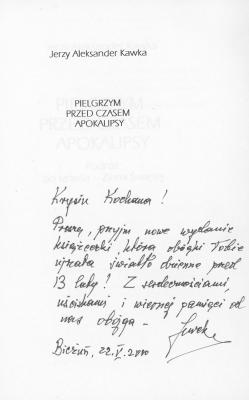 Jerzy Aleksander Kawka
PIELGRZYM
PRZED CZASEM
APOKALIPSY
Krysiu Kochana!
Proszę, przyjm nowe wydanie
książeczki, która dzięki Tobie
ujrzała światło dzienne przed
13 laty! Z serdecznościami,
uściskami i wiernej pamięci od
nas obojga –
Jurek
Bieżuń, 22.V.2010